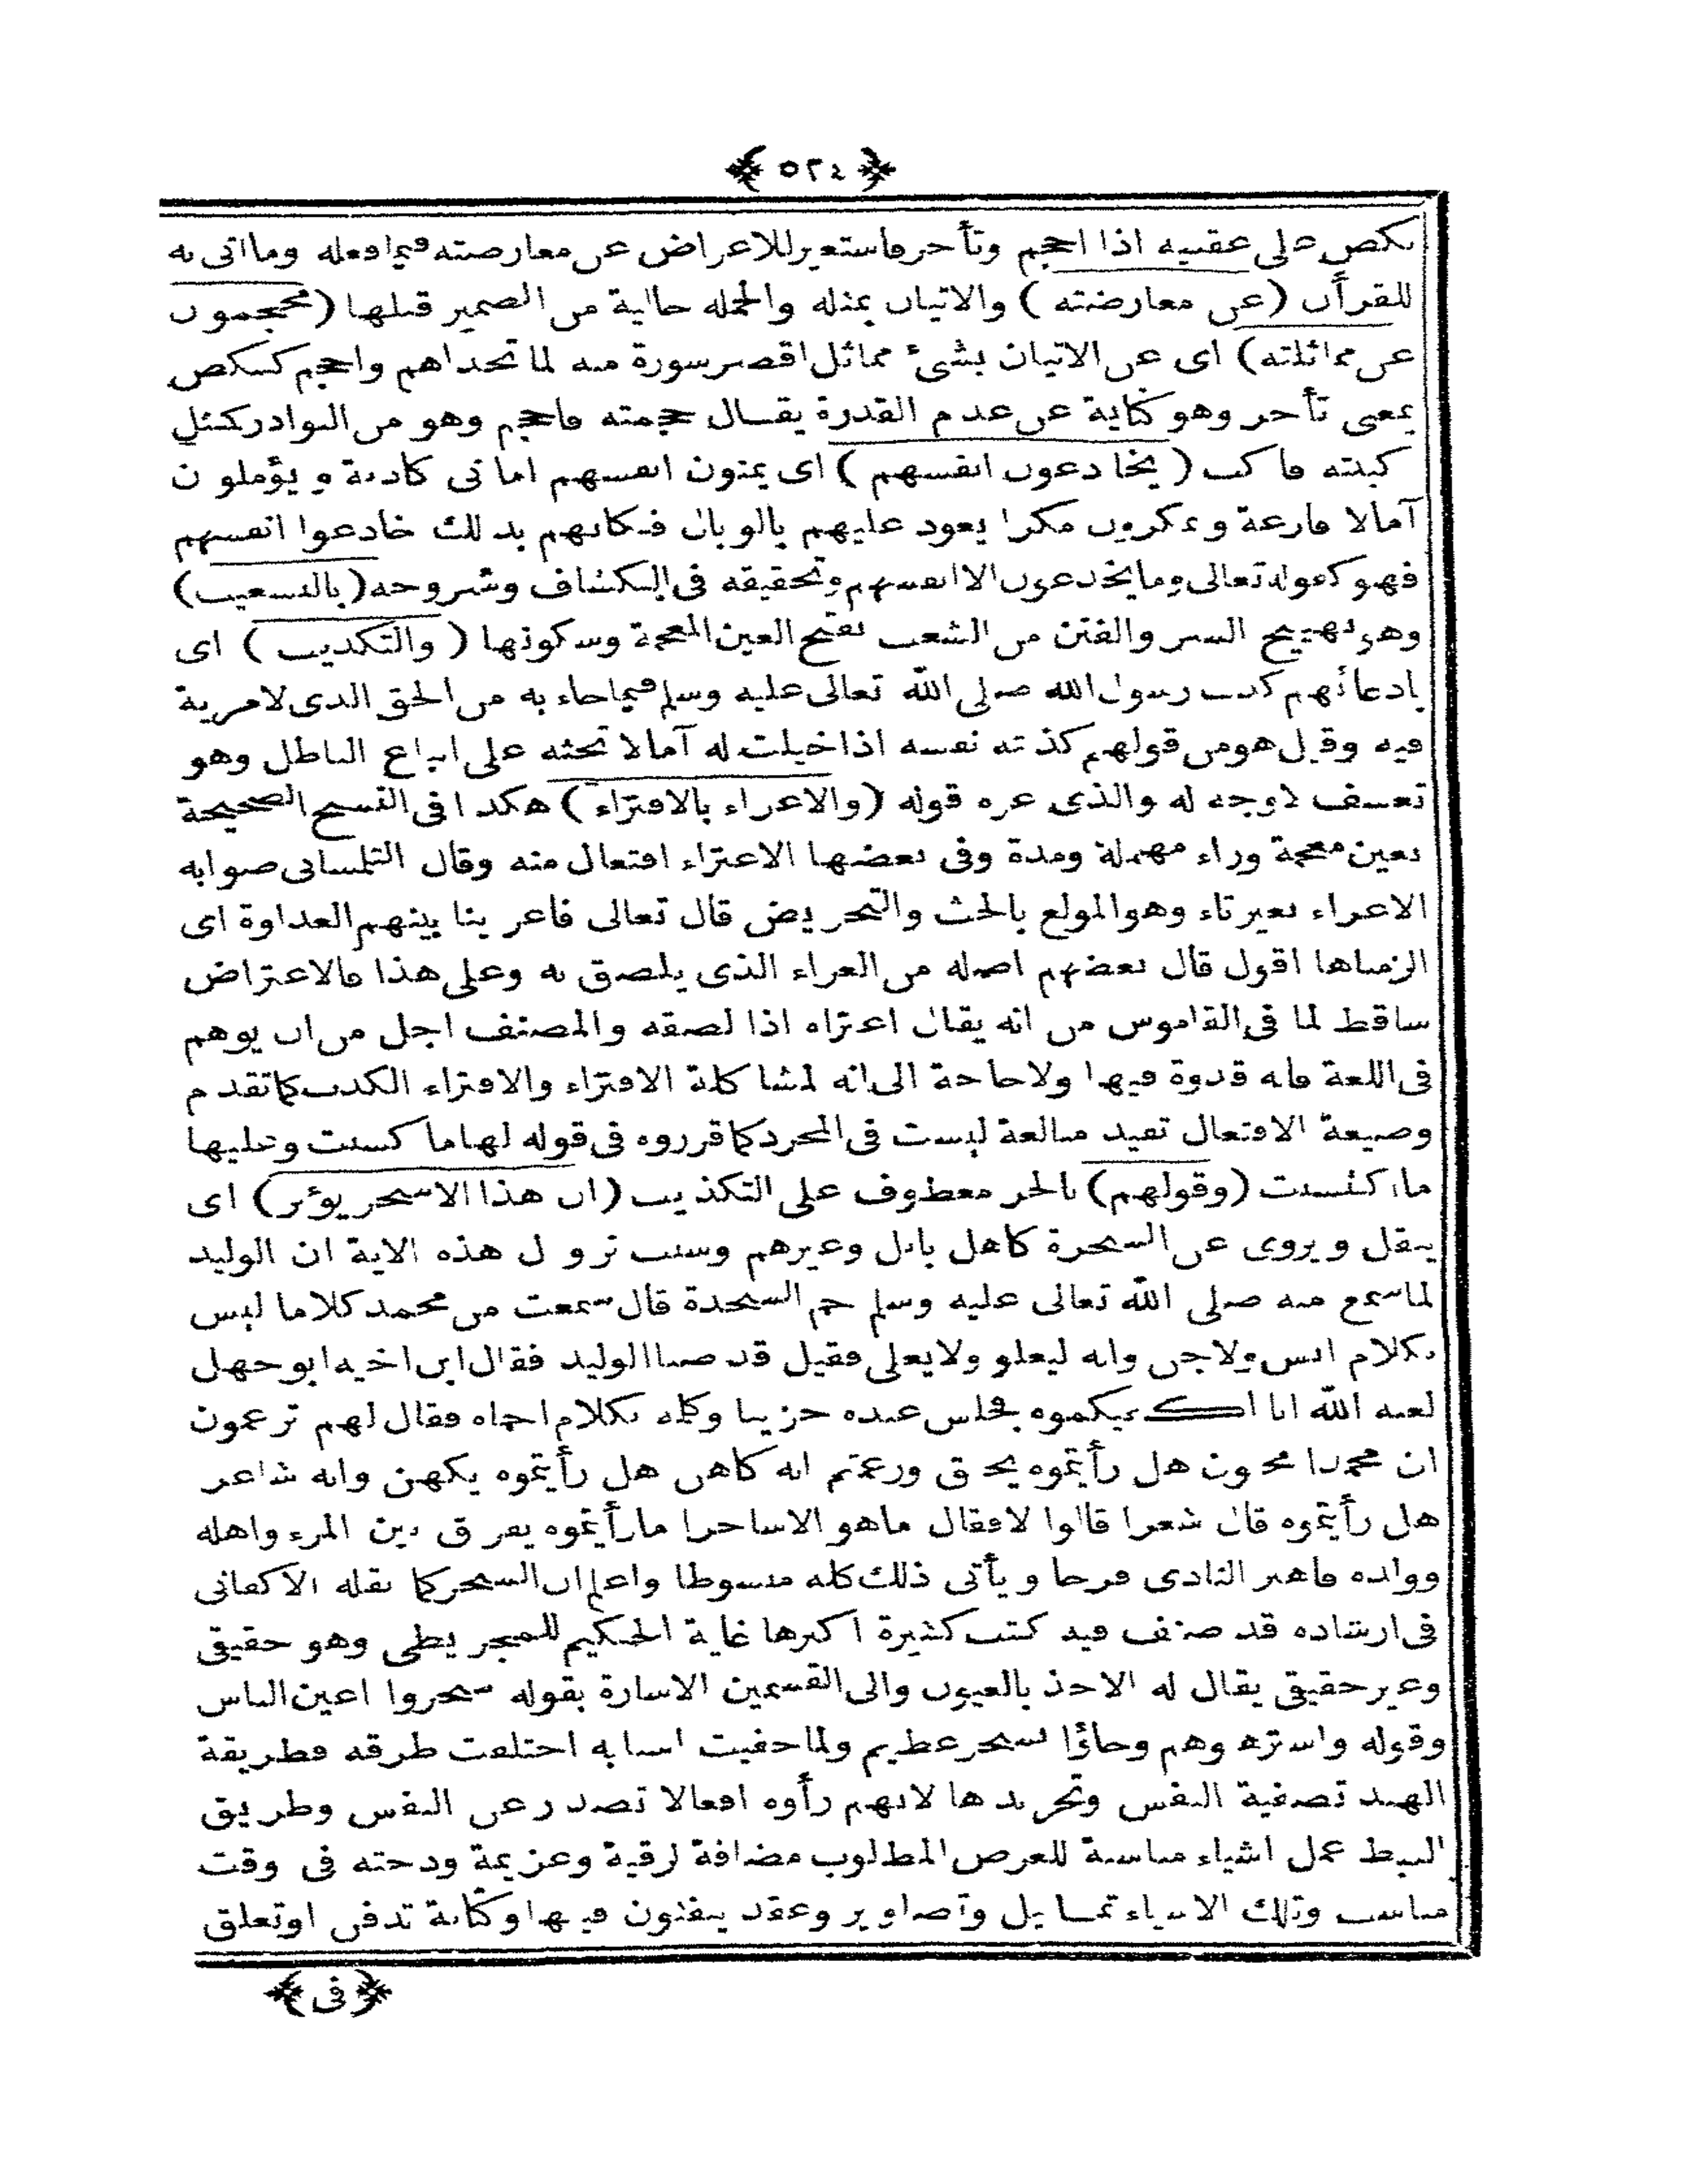 ﴿ ٥٢٤ ﴾
نكص على عقبيه اذا احجم وتأخر فاستعير للاعراض عن معارضته فيما فعله وما اتى به
للقرأن (عن معارضته) والاتيان بمثله والجملة حالية من الضمير قبلها (محجمون
عن مماثلته) اى عن الاتيان بشئ مماثل اقصر سورة منه لما تحداهم واحجم كنكص
بمعنى تأخر وهو كناية عن عدم القدرة يقال حجمته فاحجم وهو من النوادر كمثل
كببته فاكب (يخادعون انفسهم) اى يمنون انفسهم امانى كاذبة ويؤملون
آمالا فارغة ويمكرون مكرا يعود عليهم بالوبال فكانهم بذلك خادعوا انفسهم
فهو كقوله تعالى وما يخدعون الا انفسهم وتحقيقه فى الكشاف وشروحه (بالتشغيب)
وهو تهييج الشر والفتن من الشغب بفتح الغين المعجمة وسكونها (والتكذيب) اى
بادعائهم كذب رسول الله صلى الله تعالى عليه وسلم فيما جاء به من الحق الذى لامرية
فيه وقيل هو من قولهم كذبته نفسه اذا خيلت له آمالا تحثه على اتباع الباطل وهو
تعسف لاوجه له والذى غره قوله (والاغراء بالافتراء) هكذا فى النسخ الصحيحة
بغين معجمة وراء مهملة ومدة وفى بعضها الاغتراء افتعال منه وقال التلمسانى صوابه
الاغراء بغير تاء وهو المولع بالحث والتحريض قال تعالى فاغرينا بينهم العداوة اى
الزمناها اقول قال بعضهم اصله من الغراء الذى يلصق به وعلى هذا فالاعتراض
ساقط لما فى القاموس من انه يقال اغتراه اذا لصقه والمصنف اجل من ان يوهم
فى اللغة فانه قدوة فيها ولاحاجة الى انه لمشاكلة الافتراء والافتراء الكذب كما تقدم
وصيغة الافتعال تفيد مبالغة ليست فى المجرد كما قرروه فى قوله لها ما كسبت وعليها
ما اكتسبت (وقولهم) بالجر معطوف على التكذيب (ان هذا الاسحر يؤثر) اى
ينقل ويروى عن السحرة كاهل بابل وغيرهم وسبب نزول هذه الاية ان الوليد
لما سمع منه صلى الله تعالى عليه وسلم حم السجدة قال سمعت من محمد كلاما ليس
بكلام انس ولاجن وانه ليعلو ولايعلى فقيل قد صبا الوليد فقال ابن اخيه ابو جهل
لعنه الله انا اكفيكموه فجلس عنده حزينا وكله بكلام احماه فقال لهم تزعمون
ان محمدا مجنون هل رأيتموه يخنق وزعمتم انه كاهن هل رأيتموه يكهن وانه شاعر
هل رأيتموه قال شعرا قالوا لا فقال ماهو الاساحرا مارأيتموه يفرق بين المرء واهله
وولده فاهتز النادى فرحا ويأتى ذلك كله مبسوطا واعلم ان السحر كما نقله الاكفانى
فى ارشاده قد صنف فيه كتب كثيرة اكبرها غاية الحكيم للمجريطى وهو حقيقى
وغير حقيقى يقال له الاخذ بالعيون والى القسمين الاشارة بقوله سحروا اعين الناس
وقوله واسترهبوهم وجاؤا بسحر عظيم ولما خفيت اسبابه اختلفت طرقه فطريقة
الهند تصفية النفس وتجريدها لانهم رأوه افعالا تصدر عن النفس وطريق
النبط عمل اشياء مناسبة للغرض المطلوب مضافة لرقية وعزيمة ودخنه فى وقت
مناسب وتلك الاشياء تماثيل وتصاوير وعقد ينفثون فيها وكتابة تدفن اوتعلق
﴿ فى ﴾